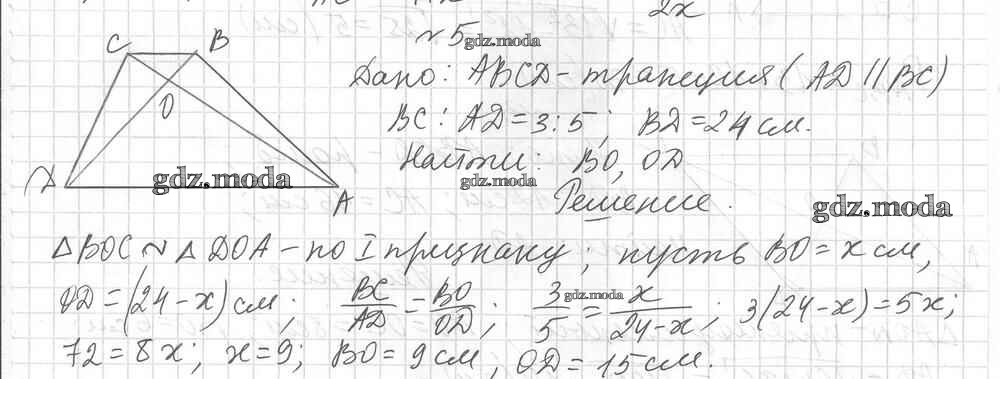 2x
C B
№5 gdz.moda
Дано: ABCD - трапеция (AD || BC)
O
BC : AD = 3:5; BD = 24 см.
Найти: BO, OD
gdz.moda gdz.moda
D A
Решение. gdz.moda
△BOC ~ △DOA - по I признаку; пусть BO = x см,
OD = (24 - x) см; BC/AD = BO/OD; 3/5 = x/(24-x); 3(24-x) = 5x;
gdz.moda
72 = 8x; x = 9; BO = 9 см, OD = 15 см.